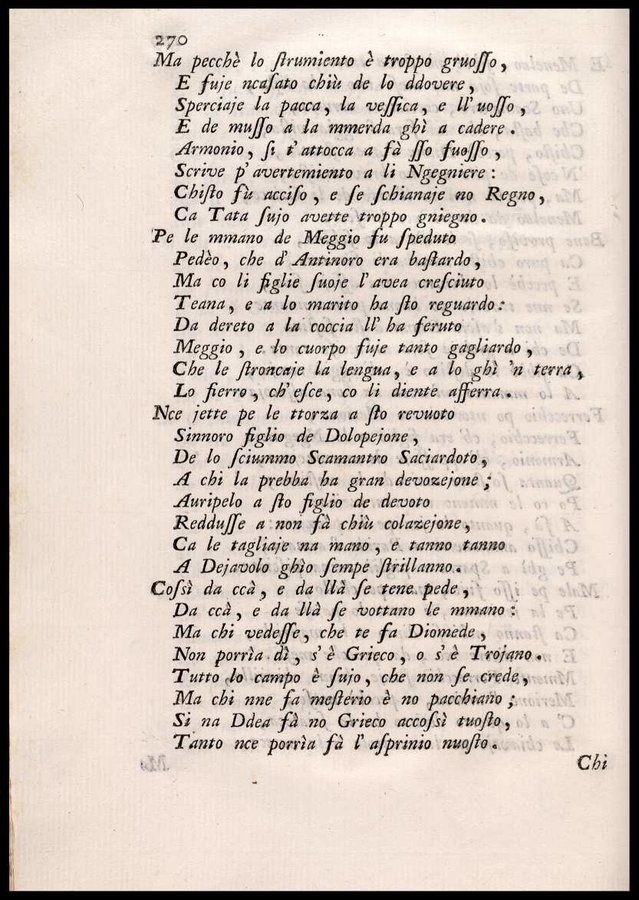 270
Ma pecchè lo ſtrumiento è troppo gruoſſo,
E fuje ncaſato chiù de lo ddovere,
Sperciaje la pacca, la veſſica, e ll' uoſſo,
E de muſſo a la mmerda ghì a cadere.
Armonio, ſi t' attocca a fà ſſo fuoſſo,
Scrive p' avertemiento a li Ngegniere:
Chiſto fù acciſo, e ſe ſchianaje no Regno,
Ca Tata ſujo avette troppo gniegno.
Pe le mmano de Meggio fu ſpeduto
Pedèo, che d' Antinoro era baſtardo,
Ma co li figlie ſuoje l' avea creſciuto
Teana, e a lo marito ha ſto reguardo:
Da dereto a la coccia ll' ha feruto
Meggio, e lo cuorpo fuje tanto gagliardo,
Che le ſtroncaje la lengua, e a lo ghì 'n terra,
Lo fierro, ch' eſce, co li diente afferra.
Nce jette pe le ttorza a ſto revuoto
Sinnoro figlio de Dolopejone,
De lo ſciummo Scamantro Saciardoto,
A chi la prebba ha gran devozejone;
Auripelo a ſto figlio de devoto
Redduſſe a non fà chiù colazejone,
Ca le tagliaje na mano, e tanno tanno
A Dejavolo ghìo ſempe ſtrillanno.
Coſſì da ccà, e da llà ſe tene pede,
Da ccà, e da llà ſe vottano le mmano:
Ma chi vedeſſe, che te fa Diomede,
Non porrìa dì, s' è Grieco, o s' è Trojano.
Tutto lo campo è ſujo, che non ſe crede,
Ma chi nne fa meſterio è no pacchiano;
Si na Ddea fà no Grieco accoſſì tuoſto,
Tanto nce porrìa fà l' aſprinio nuoſto.
Chi